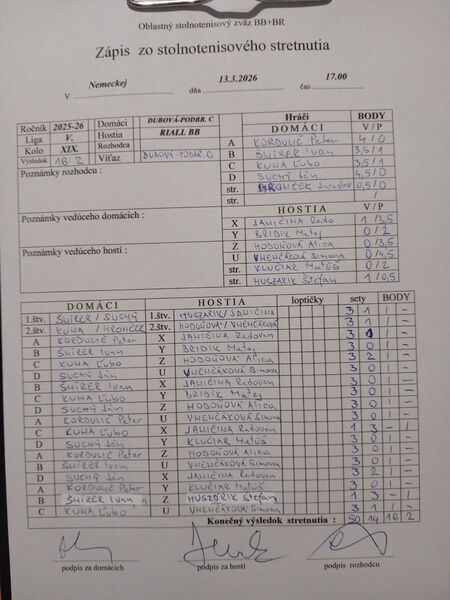 Oblastný stolnotenisový zväz BB+BR
Zápis zo stolnotenisového stretnutia
V Nemeckej dňa 13.3.2026 čas 17.00
Ročník 2025-26 Domáci DUBOVÁ-PODBR. C
Liga V. Hostia RIALL BB
Kolo XIX. Rozhodca
Výsledok 16:2 Víťaz DUBOVÁ-PODBR. C
Poznámky rozhodcu :
Poznámky vedúceho domácich :
Poznámky vedúceho hostí :
Hráči BODY
DOMÁCI V / P
A KORDULIČ Peter 4/0
B ŠNIRER Ivan 3,5/1
C KUNA Ľubo 3,5/1
D SUCHÝ Ján 4,5/0
str. HRONČEK Jaroslav 0,5/0
str. /
HOSTIA V / P
X JANIČINA Rado 1/3,5
Y BRIDIK Matej 0/2
Z HODOŇOVÁ Alica 0/3,5
U VNENČÁKOVÁ Simona 0/4,5
str. KLUČIAR Matúš 0/2
str. HUSZARIK Štefan 1/0,5
DOMÁCI HOSTIA loptičky sety BODY
1.štv. ŠNIRER / SUCHÝ 1.štv. HUSZARIK/JANIČINA 3 1 1 -
2.štv. KUNA / HRONČEK 2.štv. HODOŇOVÁ/VNENČÁKOVÁ 3 1 1 -
A KORDULIČ Peter X JANIČINA Radovan 3 1 -
B ŠNIRER Ivan Y BRIDIK Matej 3 0 1 -
C KUNA Ľubo Z HODOŇOVÁ Alica 3 2 1 -
D SUCHÝ Ján U VNENČÁKOVÁ Simona 3 0 1 -
B ŠNIRER Ivan X JANIČINA Radovan 3 0 1 -
C KUNA Ľubo Y BRIDIK Matej 3 0 1 -
D SUCHÝ Ján Z HODOŇOVÁ Alica 3 0 1 -
A KORDULIČ Peter U VNENČÁKOVÁ Simona 3 0 1 -
C KUNA Ľubo X JANIČINA Radovan 1 3 - 1
D SUCHÝ Ján Y KLUČIAR Matúš 3 0 1 -
A KORDULIČ Peter Z HODOŇOVÁ Alica 3 0 1 -
B ŠNIRER Ivan U VNENČÁKOVÁ Simona 3 0 1 -
D SUCHÝ Ján X JANIČINA Radovan 3 2 1 -
A KORDULIČ Peter Y KLUČIAR Matúš 3 0 1 -
B ŠNIRER Ivan Z HUSZARIK Štefan 1 3 - 1
C KUNA Ľubo U VNENČÁKOVÁ Simona 3 1 1 -
Konečný výsledok stretnutia : 50 14 16 2
podpis za domácich podpis za hostí podpis rozhodcu